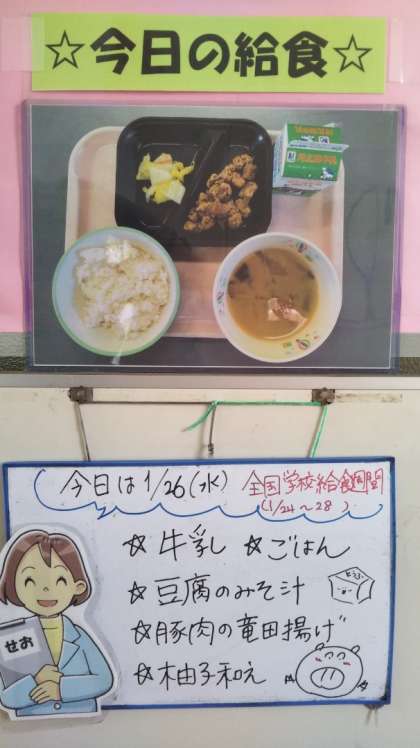 ☆今日の給食☆
今日は1/26(水) 全国学校給食週間
(1/24～28)
☆牛乳 ☆ごはん
☆豆腐のみそ汁
とうふ
☆豚肉の竜田揚げ
せお
☆柚子和え